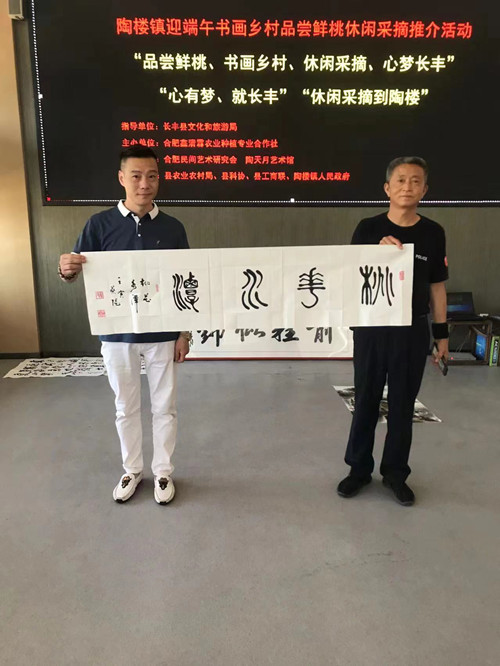 陶楼镇迎端午书画乡村品尝鲜桃休闲采摘推介活动
“品尝鲜桃、书画乡村、休闲采摘、心梦长丰”
“心有梦、就长丰” “休闲采摘到陶楼”
指导单位：长丰县文化和旅游局
合肥鑫 农业种植专业合作社
合肥民间艺术研究会 陶天月艺术馆
县农业农村局、县科协、县工商联、陶楼镇人民政府
桃華水潭
POLICE